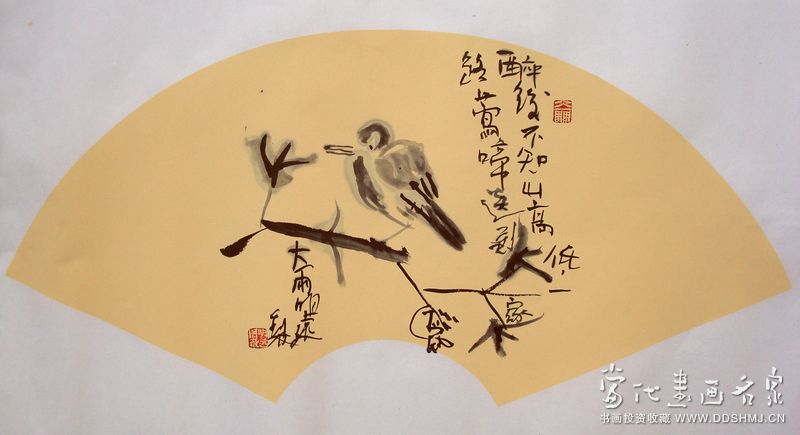 醉後不知山高低一
路鶯啼送到家
大雨明遠
當代書画名家
书画投资收藏 WWW.DDSHMJ.CN